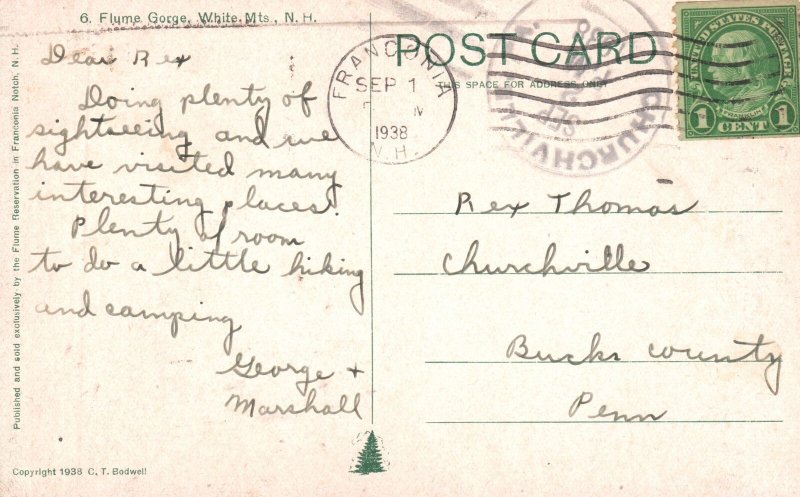 6. Flume Gorge, White Mts., N. H.
POST CARD
THIS SPACE FOR ADDRESS ONLY
FRANCONIA
SEP 1
M
1938
N.H.
CHURCHVILLE
SEP
UNITED STATES POSTAGE
FRANKLIN
1 CENT 1
Dear Rex
Doing plenty of
sightseeing and we
have visited many
interesting places.
Plenty of room
to do a little hiking
and camping
George +
Marshall
Rex Thomas
Churchville
Bucks County
Penn
Published and sold exclusively by the Flume Reservation in Franconia Notch, N. H.
Copyright 1938 C. T. Bodwell